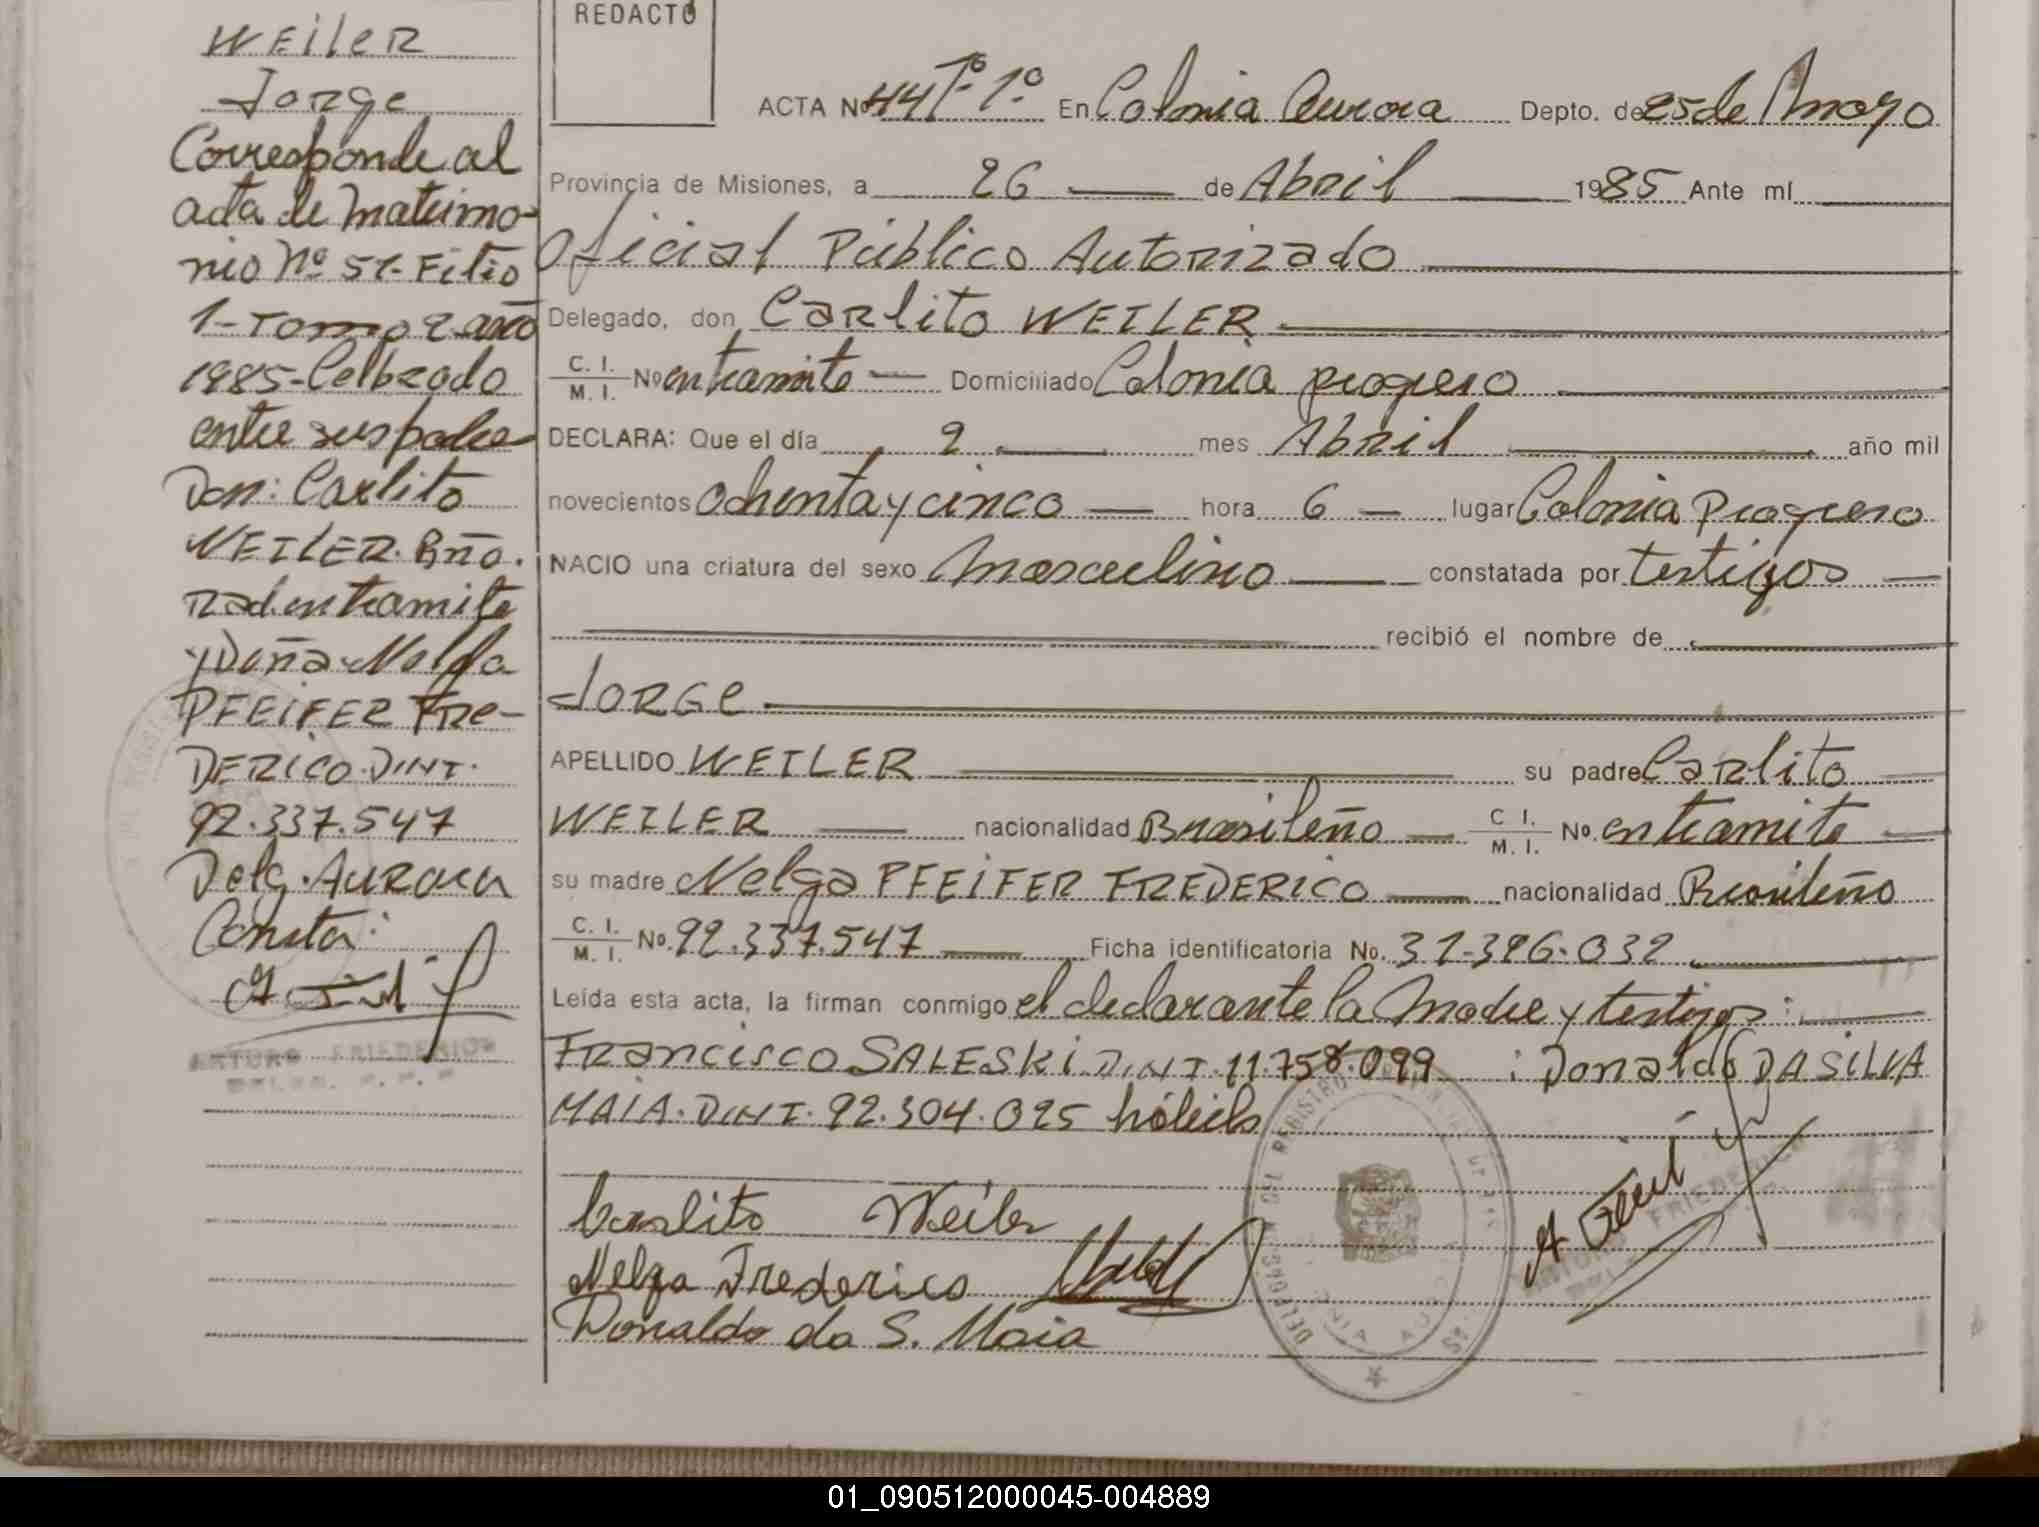 WEILER
Jorge
Corresponde al
acta de matrimo-
nio Nº 51- Folio
1- Tomo 2 año
1985- Celbrado
entre sus padre
Don: Carlito
WEILER. Bño.
Rad. en tramite
y Doña Nelga
PFEIFER FRe-
DERICO. D.N.I.
92.337.547
Delg. AURORA
Consta:
ARTURO FRIEDERICH
REDACTO
ACTA Nº 44 Tº 1º En Colonia Aurora Depto. de 25 de Mayo
Provincia de Misiones, a 26 de Abril 1985 Ante mí
Oficial Público Autorizado
Delegado, don Carlito WEILER
C. I. M. I. Nº en tramite Domiciliado Colonia progreso
DECLARA: Que el día 2 mes Abril año mil
novecientos ochenta y cinco hora 6 lugar Colonia Progreso
NACIO una criatura del sexo Masculino constatada por testigos
recibió el nombre de
JORGE
APELLIDO WEILER su padre Carlito
WEILER nacionalidad Brasileño C I. M. I. Nº. en tramite
su madre Nelga PFEIFER FREDERICO nacionalidad Brasileño
C. I. M. I. Nº. 92.337.547 Ficha identificatoria No. 31-326.032
Leída esta acta, la firman conmigo el declarante la Madre y testigos:
FRANCISCO SALESKI D.N.I. 11.758.099 : Donaldo DA SILVA
MAIA. D.N.I. 92.304.025 hábiles
Carlito Weiler
Nelga Frederico
Donaldo da S. Maia
01_090512000045-004889